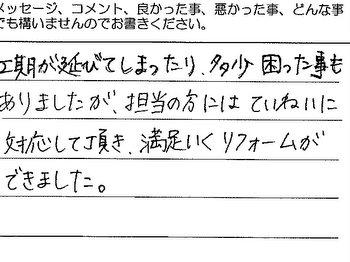 メッセージ、コメント、良かった事、悪かった事、どんな事
でも構いませんのでお書きください。
工期が延びてしまったり、多少困った事も
ありましたが、担当の方にはていねいに
対応して頂き、満足いくリフォームが
できました。